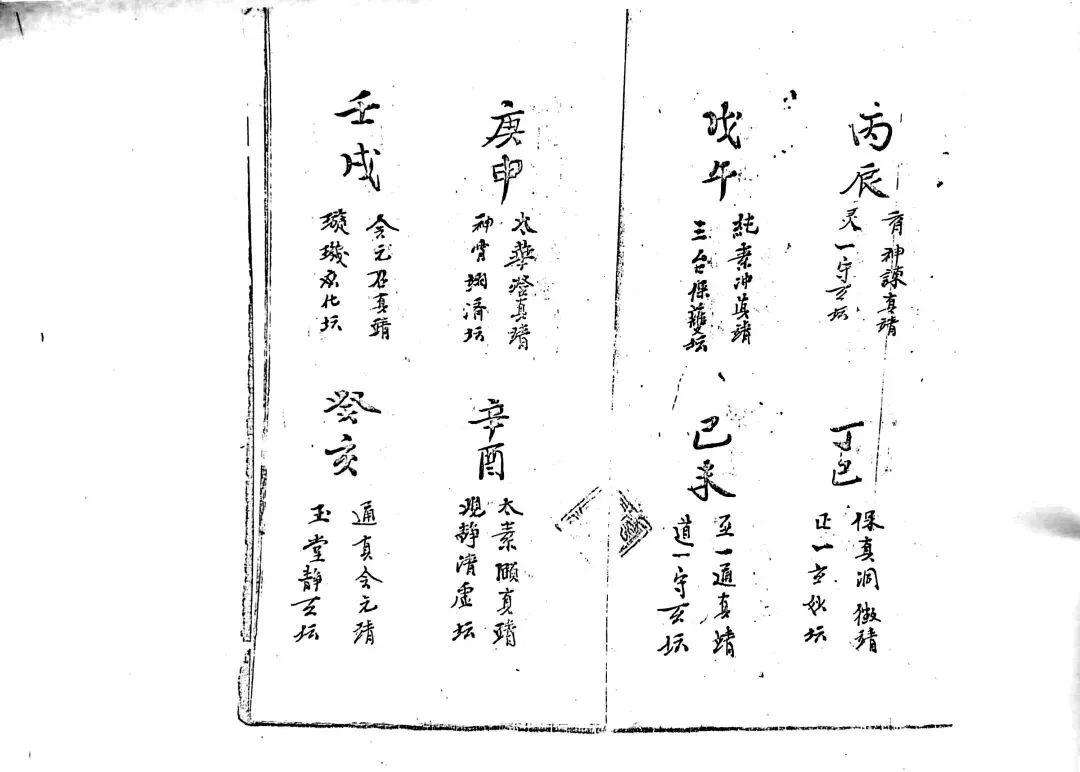 丙辰
育神諫真靖
灵一守玄坛
丁巳
保真洞微靖
正一玄妙坛
戊午
純素冲真靖
三台保護坛
己未
至一通真靖
道一守玄坛
庚申
太華登真靖
神霄坛
辛酉
太素頤真靖
观静清虚坛
壬戌
会元召真靖
璇璣化坛
癸亥
通真会元靖
玉堂静玄坛